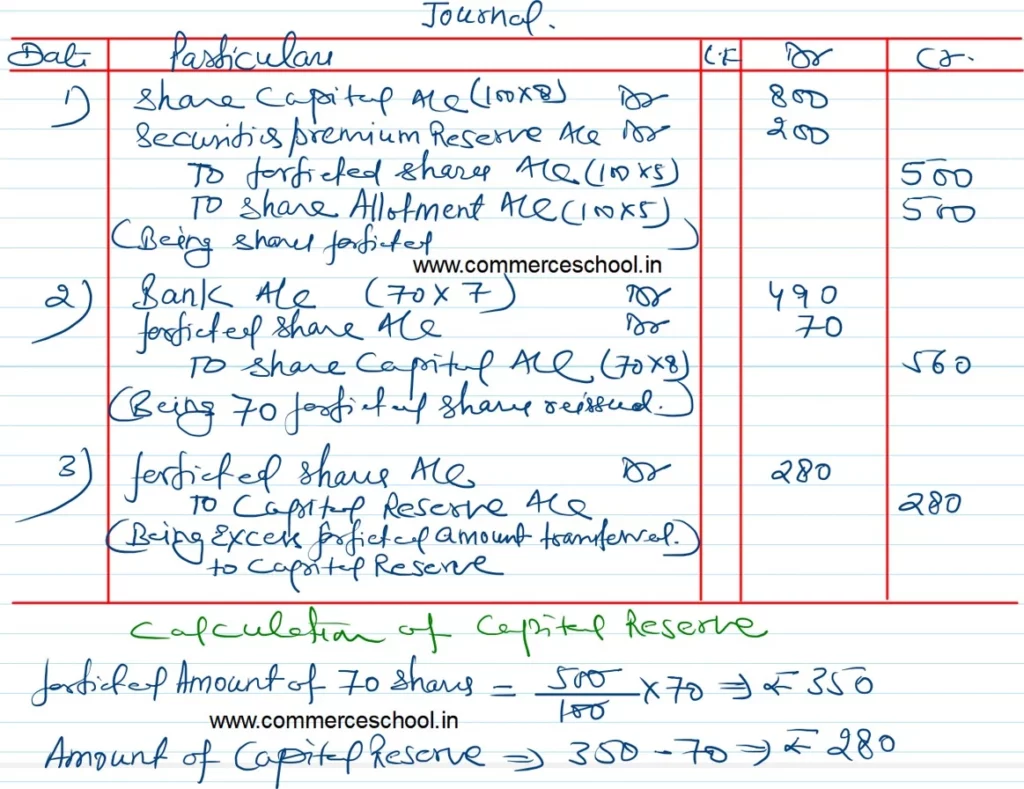 Journal.
Date Particulars L.F Dr Cr.
1) Share Capital A/c (100x8) Dr 800
Securities premium Reserve A/c Dr 200
To forficted shares A/c (100x5) 500
To Share Allotment A/c (100x5) 500
(Being shares forficted)
www.commerceschool.in
2) Bank A/c (70x7) Dr 490
forficted share A/c Dr 70
To share Capital A/c (70x8) 560
(Being 70 forficted share reissued.)
3) forficted shares A/c Dr 280
To Capital Reserve A/c 280
(Being Excess forficted amount transferred.)
to Capital Reserve
Calculation of Capital Reserve
forficted Amount of 70 shares = 500/100 x 70 ⇒ ₹ 350
www.commerceschool.in
Amount of Capital Reserve ⇒ 350 - 70 ⇒ ₹ 280